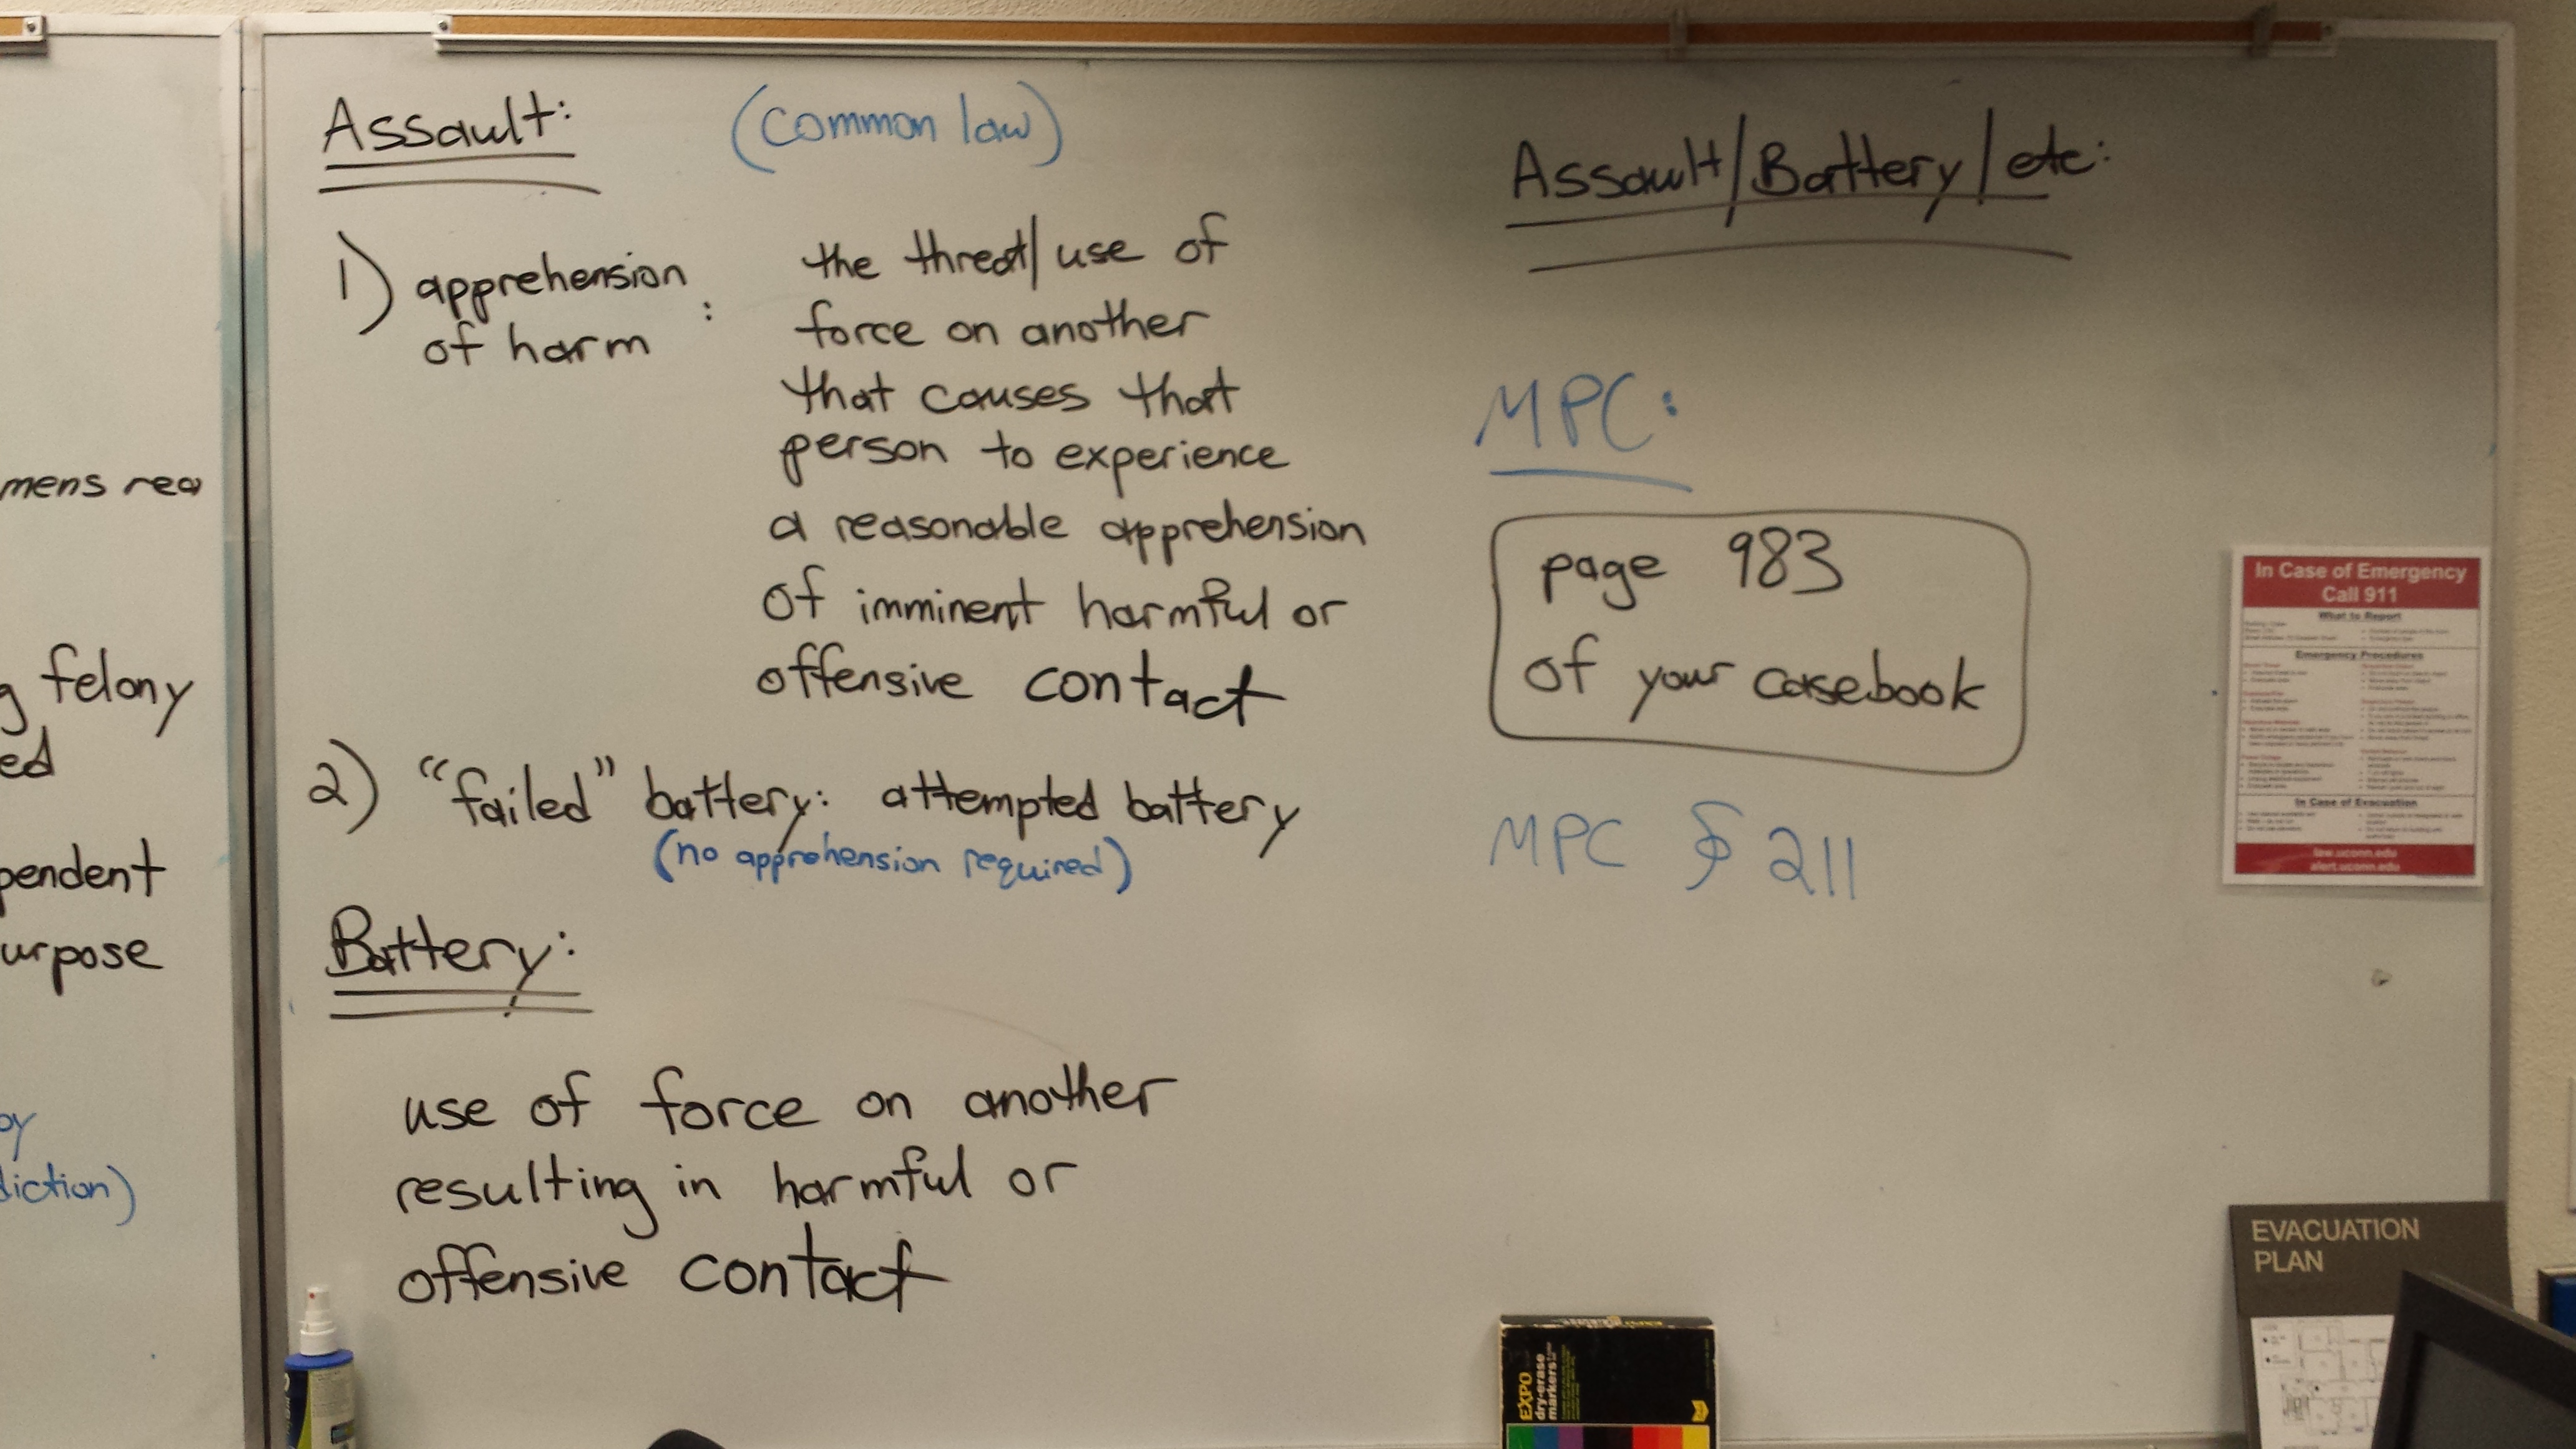 mens rea
felony
ed
pendent
urpose
diction)
Assault:
(common law)
1) apprehension
of harm :
the threat/use of
force on another
that causes that
person to experience
a reasonable apprehension
of imminent harmful or
offensive contact
2) "failed" battery: attempted battery
(no apprehension required)
Battery:
use of force on another
resulting in harmful or
offensive contact
Assault/Battery/etc:
MPC:
page 983
of your casebook
MPC § 211
In Case of Emergency
Call 911
What to Report
Emergency Procedures
In Case of Evacuation
law.uconn.edu
alert.uconn.edu
EVACUATION
PLAN
EXPO
dry-erase
markers